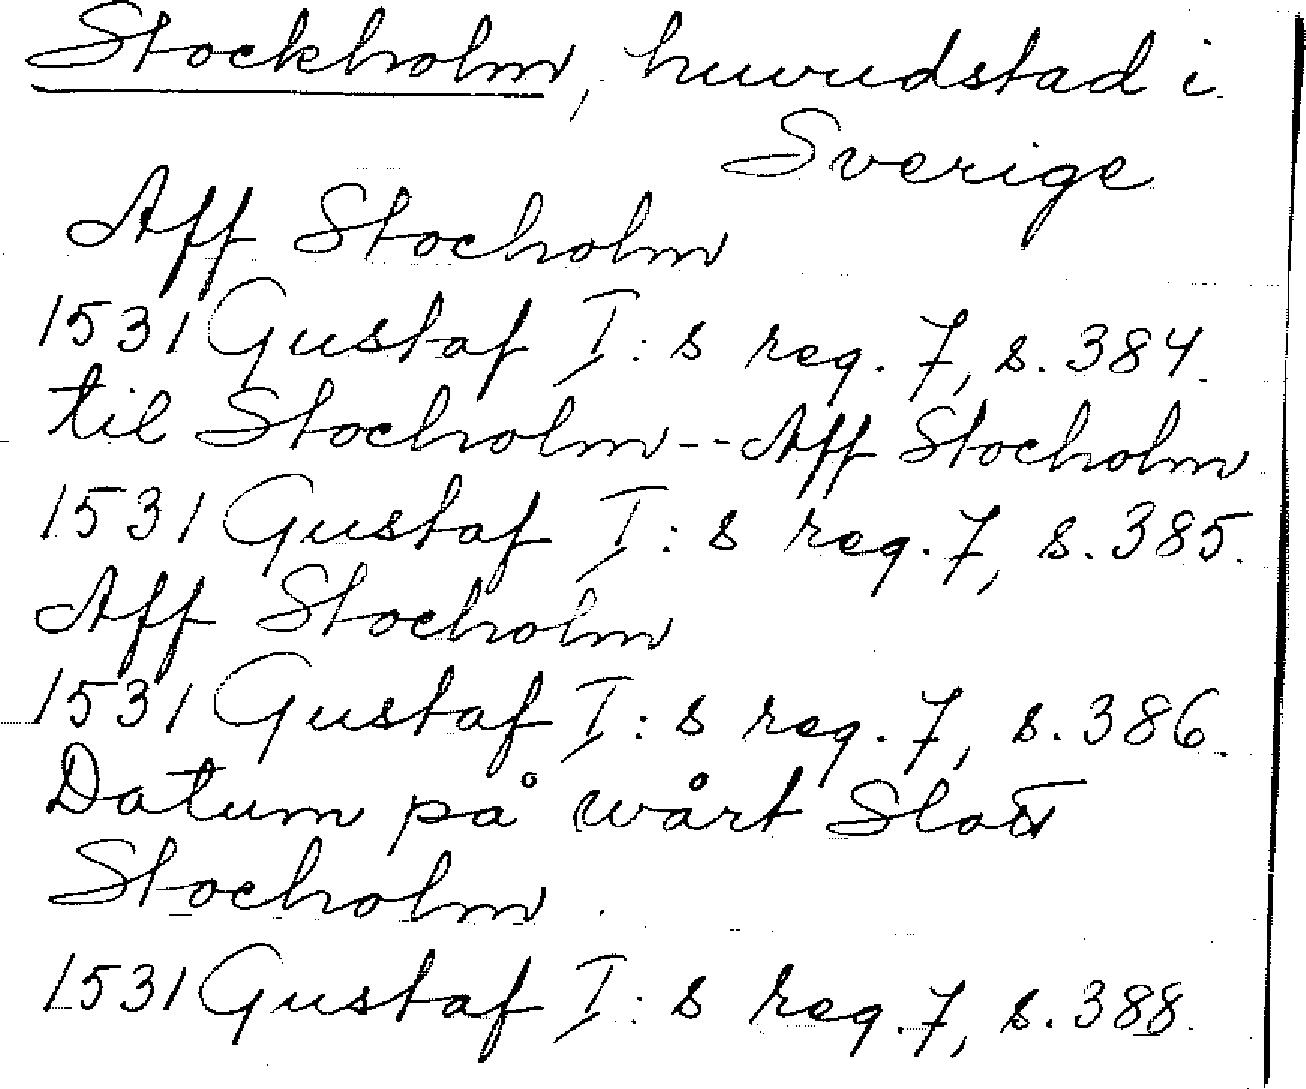 Stockholm, huvudstad i
Sverige
Aff Stocholm
1531 Gustaf I:s reg. 7, s. 384.
til Stocholm -- Aff Stocholm
1531 Gustaf I:s reg. 7, s. 385.
Aff Stocholm
1531 Gustaf I:s reg. 7, s. 386.
Datum på wårt Slott
Stocholm.
1531 Gustaf I:s reg. 7, s. 388.